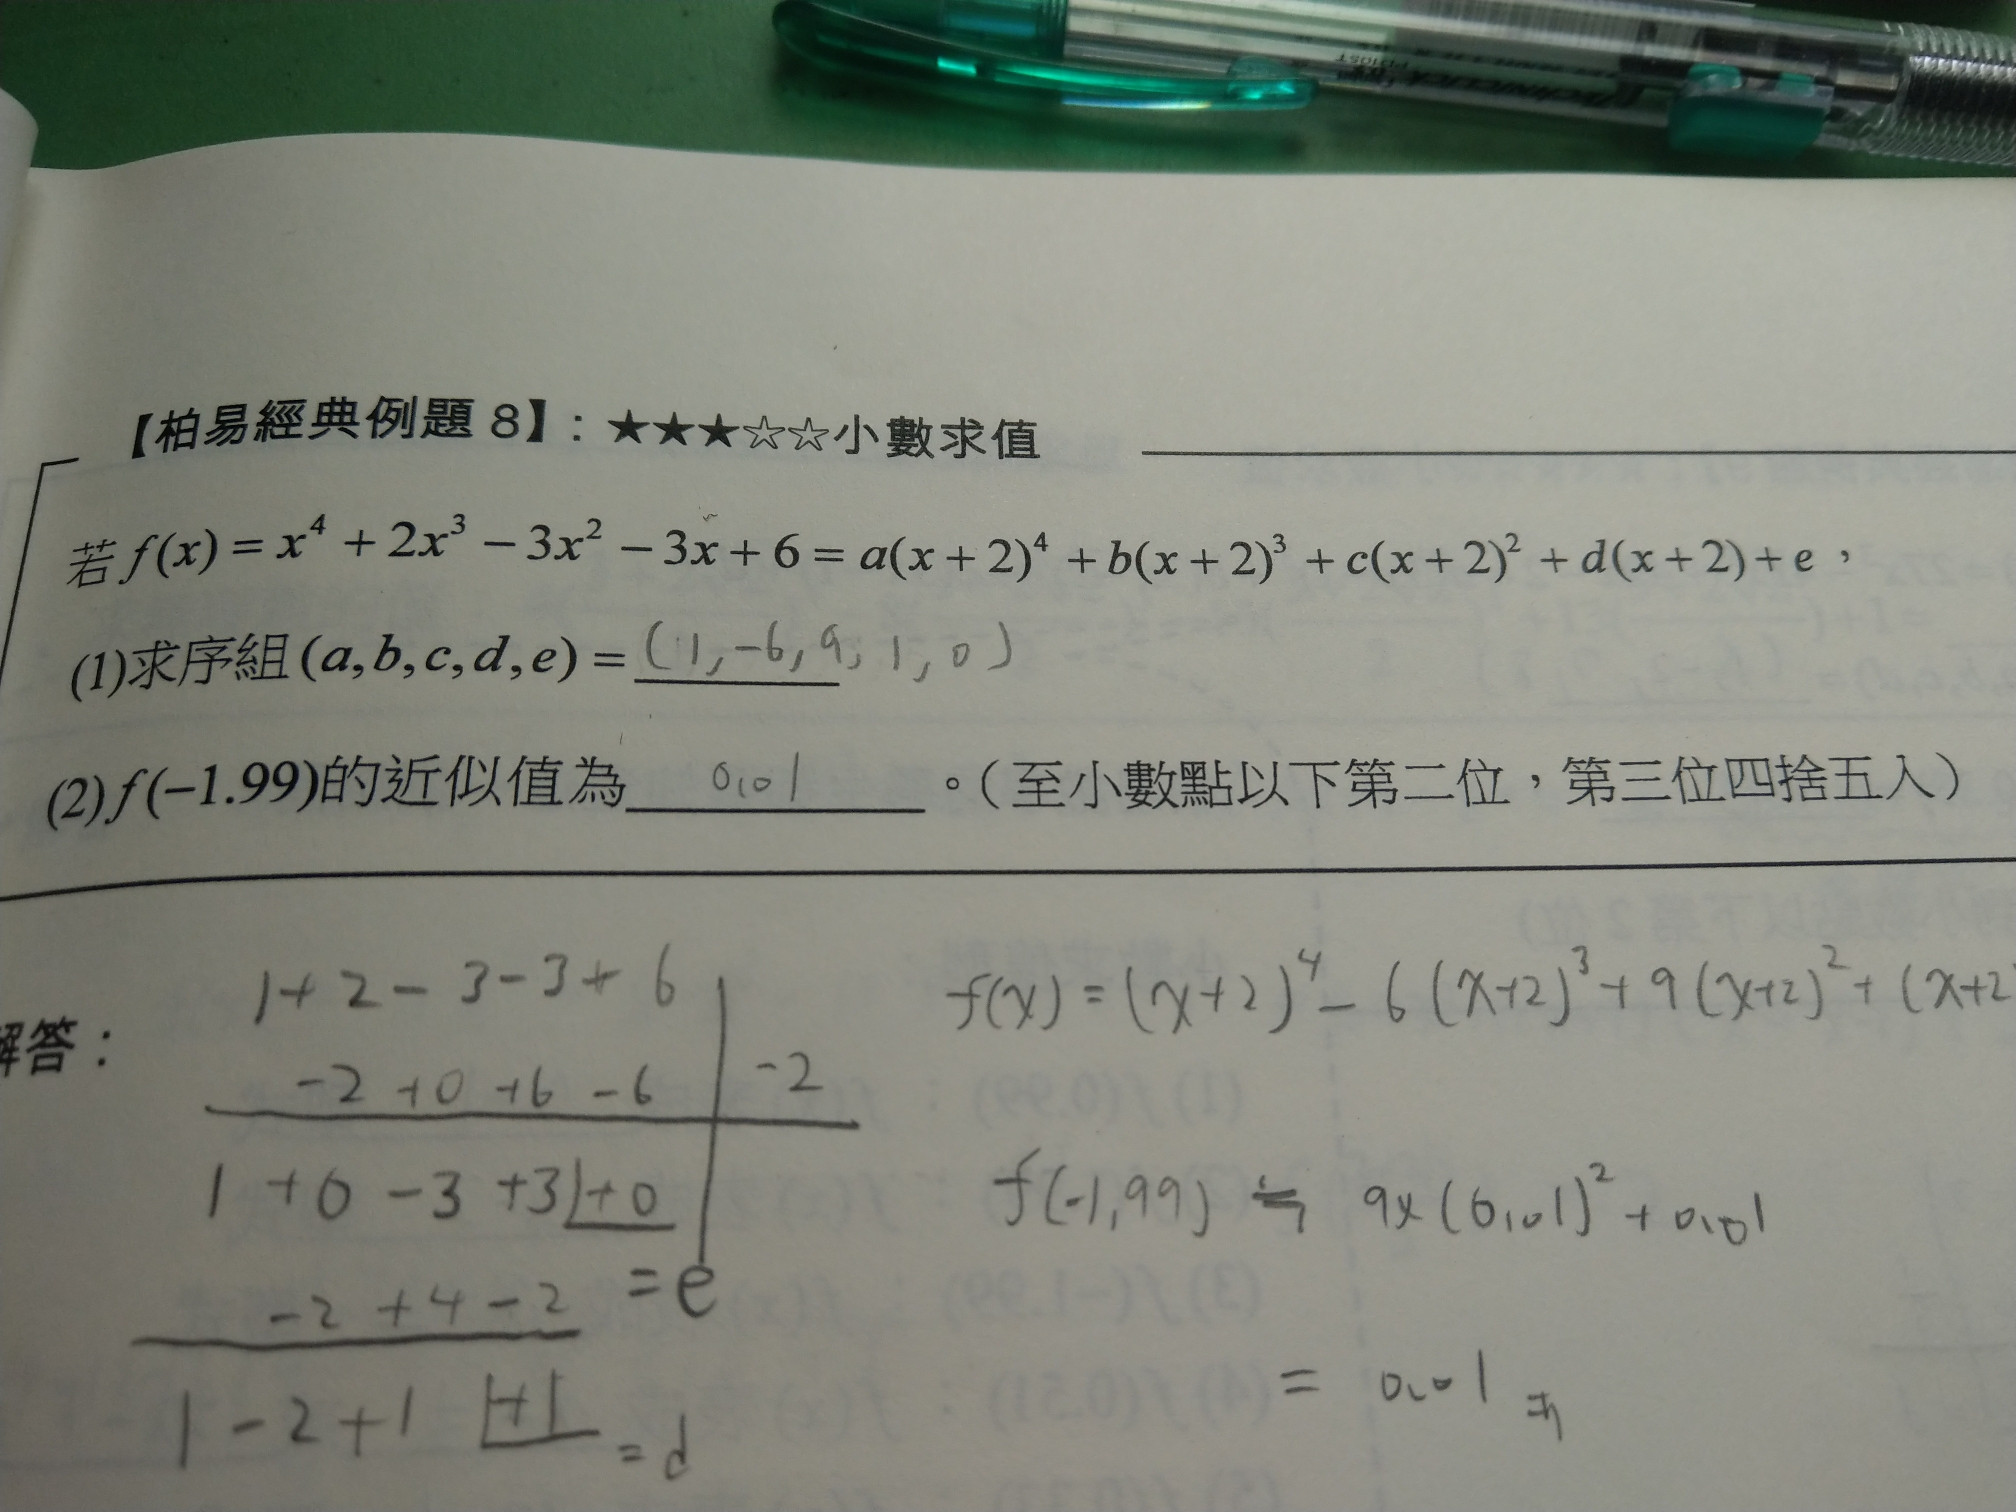 【柏易經典例題 8】:★★★☆☆小數求值
若 f(x) = x⁴ + 2x³ − 3x² − 3x + 6 = a(x + 2)⁴ + b(x + 2)³ + c(x + 2)² + d(x + 2) + e ,
(1)求序組(a,b,c,d,e) = (1,-6,9,1,0)
(2)f(−1.99)的近似值為 0.01 。(至小數點以下第二位,第三位四捨五入)
解答:
1+2-3-3+6
-2+0+6-6 -2
1+0-3+3+0
=e
-2+4-2
1-2+1+1
=d
f(x)=(x+2)⁴-6(x+2)³+9(x+2)²+(x+2
f(-1.99)≒9x(0.01)²+0.01
=0.01